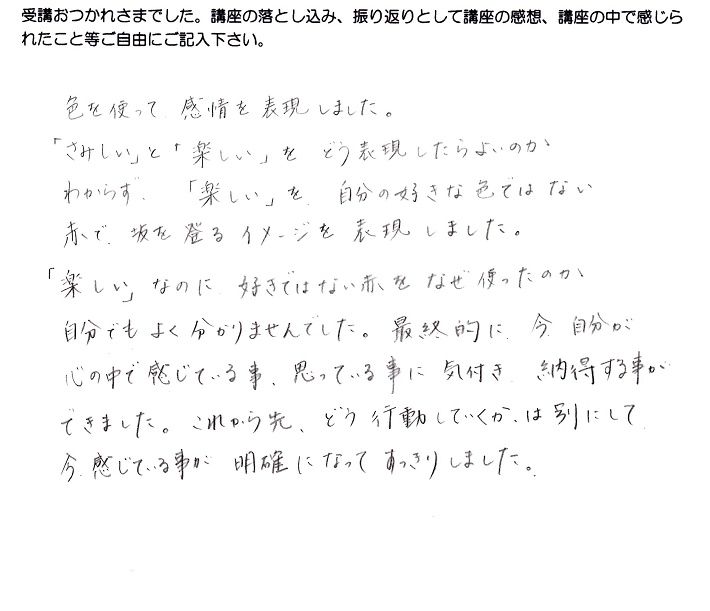 受講おつかれさまでした。講座の落とし込み、振り返りとして講座の感想、講座の中で感じら
れたこと等ご自由にご記入下さい。
色を使って、感情を表現しました。
「さみしい」と「楽しい」を どう表現したらよいのか
わからず、「楽しい」を、自分の好きな色ではない
赤で、坂を登るイメージを表現しました。
「楽しい」なのに、好きではない赤をなぜ使ったのか
自分でもよく分かりませんでした。最終的に、今、自分が
心の中で感じている事、思っている事に気付き、納得する事が
できました。これから先、どう行動していくか、は別にして
今、感じている事が明確になってすっきりしました。